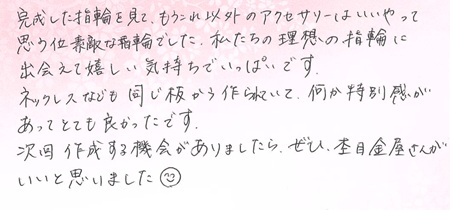 完成した指輪を見て、もうこれ以外のアクセサリーはいいやって
思う位素敵な指輪でした。私たちの理想の指輪に
出会えて嬉しい気持ちでいっぱいです。
ネックレスなども同じ板から作られていて、何か特別感が
あってとても良かったです。
次回作成する機会がありましたら、ぜひ、杢目金屋さんが
いいと思いました☺